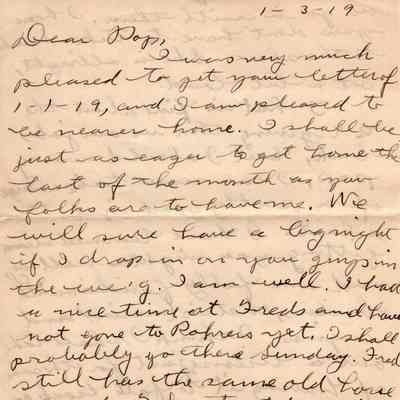 1-3-19
Dear Pop,
I was very much
pleased to get your letter of
1-1-19, and I am pleased to
be nearer home. I shall be
just as eager to get home the
last of the month as you
folks are to have me. We
will sure have a big night
if I drop in on you guys in
the eve'g. I am well. I had
a nice time at Freds and have
not gone to Rohrers yet. I shall
probably go there Sunday. Fred
still has the same old horse